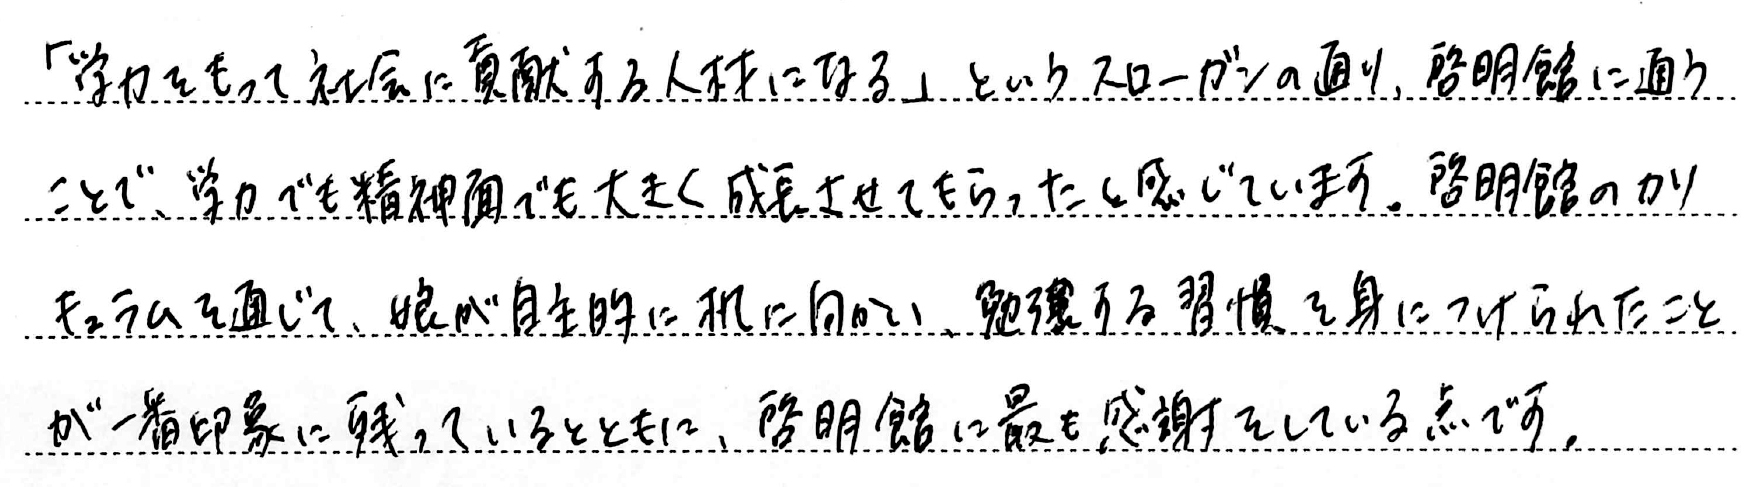 「学力をもって社会に貢献する人材になる」というスローガンの通り、啓明館に通う
ことで、学力でも精神面でも大きく成長させてもらったと感じています。啓明館のカリ
キュラムを通じて、娘が自主的に机に向かい、勉強する習慣を身につけられたこと
が一番印象に残っているとともに、啓明館に最も感謝をしている点です。